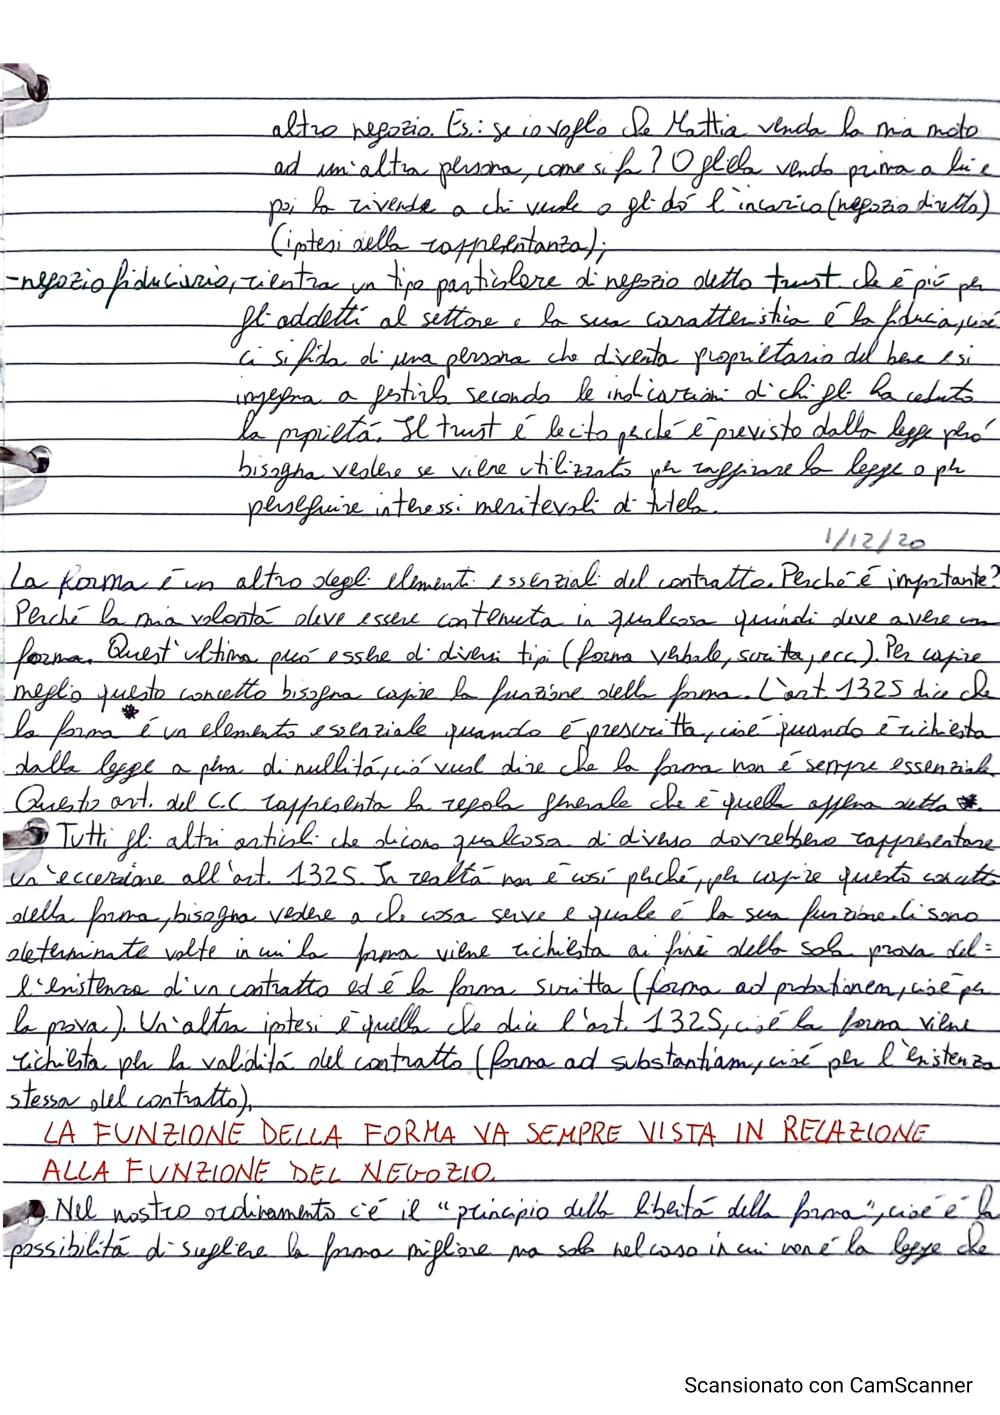 altro negozio. Es.: se io voglio che Mattia venda la mia moto
ad un'altra persona, come si fa? O gliela vendo prima a lui e
poi la rivende a chi vuole o gli dó l'incarico (negozio diretto)
(ipotesi della rappresentanza);
-negozio fiduciario, rientra un tipo particolare di negozio detto trust che é più per
gli addetti al settore e la sua caratteristica é la fiducia, cioé
ci si fida di una persona che diventa proprietario del bene e si
impegna a gestirlo secondo le indicazioni di chi gli ha ceduto
la proprietá. Il trust é lecito perché é previsto dalla legge peró
bisogna vedere se viene utilizzato per raggirare la legge o per
perseguire interessi meritevoli di tutela.
1/12/20
La forma é un altro degli elementi essenziali del contratto. Perché é importante?
Perché la mia volontá deve essere contenuta in qualcosa quindi deve avere una
forma. Quest'ultima puó essere di diversi tipi (forma verbale, scritta, ecc.). Per capire
meglio questo concetto bisogna capire la funzione della forma. L'art. 1325 dice che
la forma *é un elemento essenziale quando é prescritta, cioé quando é richiesta
dalla legge a pena di nullitá, ció vuol dire che la forma non é sempre essenziale.
Questo art. del C.C. rappresenta la regola generale che é quella appena detta *.
Tutti gli altri articoli che dicono qualcosa di diverso dovrebbero rappresentare
un'eccezione all'art. 1325. In realtá non é cosí perché, per capire questo concetto
della forma, bisogna vedere a che cosa serve e quale é la sua funzione. Ci sono
determinate volte in cui la forma viene richiesta ai fini della sola prova del=
l'esistenza di un contratto ed é la forma scritta (forma ad probationem, cioé per
la prova). Un'altra ipotesi é quella che dice l'art. 1325, cioé la forma viene
richiesta per la validitá del contratto (forma ad substantiam, cioé per l'esistenza
stessa del contratto).
LA FUNZIONE DELLA FORMA VA SEMPRE VISTA IN RELAZIONE
ALLA FUNZIONE DEL NEGOZIO.
Nel nostro ordinamento c'é il "principio della libertá della forma", cioé é la
possibilitá di scegliere la forma migliore ma solo nel caso in cui non é la legge che
Scansionato con CamScanner